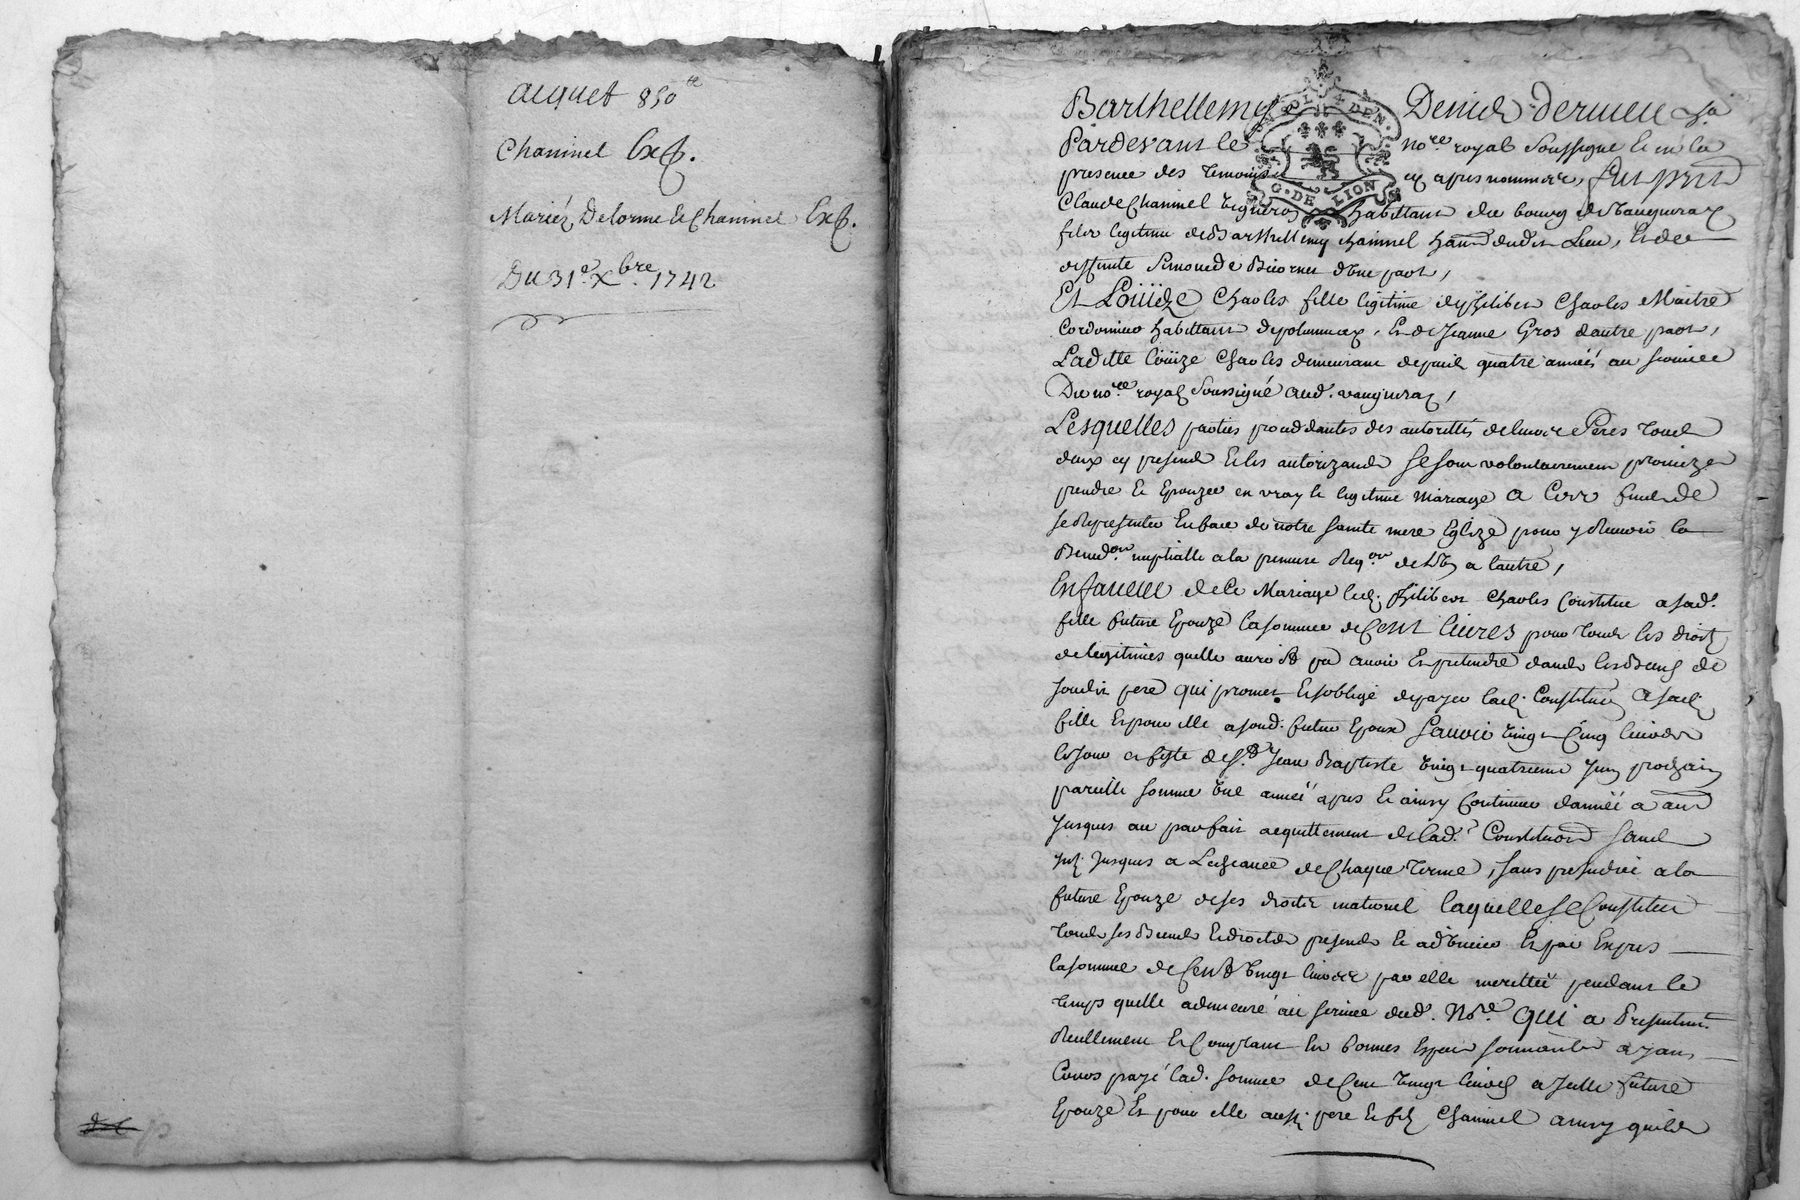 acquet 850 tt
Chaninel Exp.
Mariéz Delorme et Chaninel Exp.
Du 31e. Xbre. 1742
Barthellemy Denis dernieu
G. DE LION
Pardevant le nore royal soussigne et en la
presence des temoins cy apres nommez, fut prnt
Claude Chaninel vigneron habittant du bourg de Vaugneray
fils legitime de Barthellemy Chaninel hant dudit Lieu, et de
deffunte Simonde Bicornet d'une part,
Et Loüize Charles fille legitime de philibert Charles Maitre
Cordonnier habittant de pollionnay, et de Jeanne Gros dautre part,
Laditte loüize Charles demeurant depuis quatre années au service
Du nore royal soussigné aud. vaugneray,
Lesquelles parties proceddantes des autorittés de leurs Peres tous
deux cy presents et les autorizands se sont volontairement promize
prendre et Epouzer en vray et legitime mariage a Cess fins de
se representer En face de notre sainte mere Eglize pour y recevoir la
Bened.on nuptialle a la premiere Req.on de Lun a lautre,
En faveur de Ce Mariage led. philibert Charles Constitue a sad.
fille future Epouze la somme de Cent livres pour tous les droits
de legitimes quelle auroit pu avoir et pretendre dans les Biens de
soudit pere qui promet et soblige de payer lad. Constitution a sad.
fille et pour elle a soud. futur Epoux sauoir vingt Cinq livres
le jour et feste de St. Jean Baptiste vingt quatrieme Juin prochain
pareille somme une année apres et ainsy Continuer dannée a an
Jusques au parfait acquittement de lad.e Constitution sans
Int. Jusques a Lescheance de Chaque terme, sans prejudice a la
future Epouze de ses droits maternel laquelle se Constitue
tous ses Biens et droits presents et advenir et par Expres
la somme de Cent vingt livres par elle merittée pendant le
temps quelle a demeuré au service dud. Nore. qui a Presentemt.
Reellement et Comptant en bonnes Especes sonnantes ayant
Cours payé lad. somme de Cent vingt livres a jcelle future
Epouze et pour elle auxd. pere et fils Chaninel ainsy quils